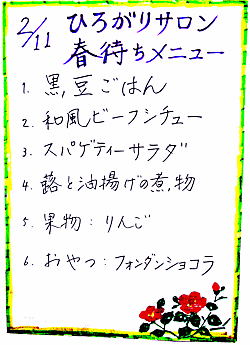 2/11 ひろがりサロン
春待ちメニュー
1. 黒豆ごはん
2. 和風ビーフシチュー
3. スパゲティーサラダ
4. 蕗と油揚げの煮物
5. 果物：りんご
6. おやつ：フォンダンショコラ